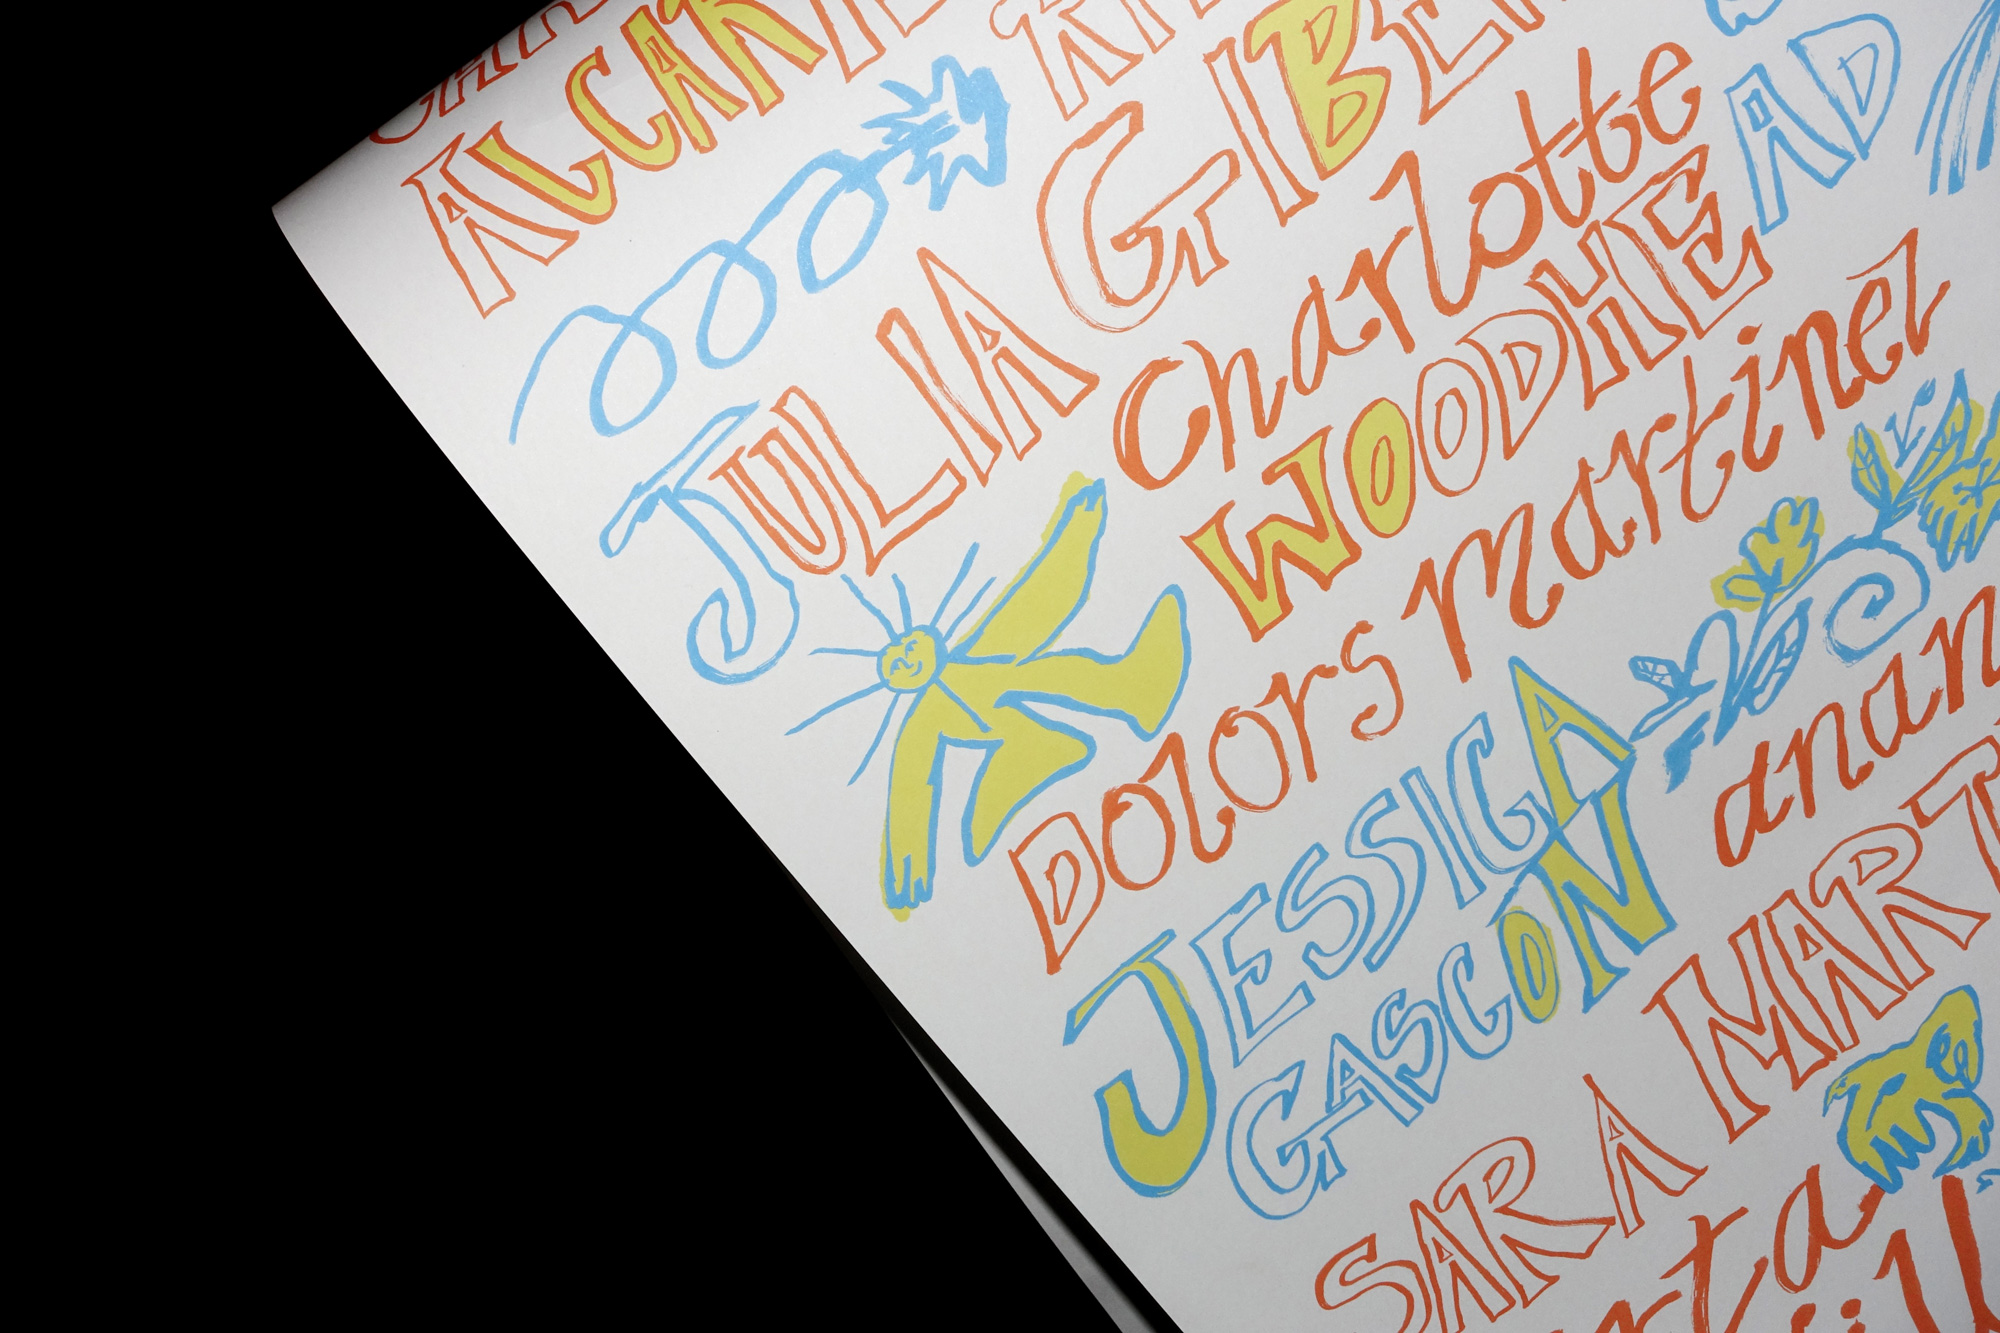 ALCAR
JULIA GIBE
Charlotte
WOODHEAD
Dolors Martinez
JESSICA
GASCON
anan
SARA MART